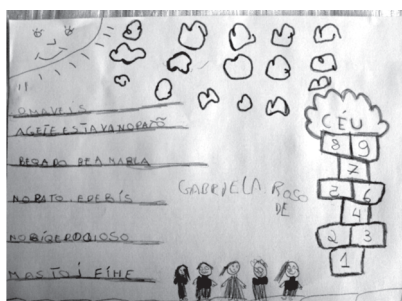 OMAVEIS
AGETE ESTAVANOPATÕ
PEGADO PEAMABLA
NO PATO, EPEBIS
NOBIGEROCIOSO
MASTOI EIHE
GABRIELA ROSO
DE
CÉU
8 9
7
5 6
4
2 3
1